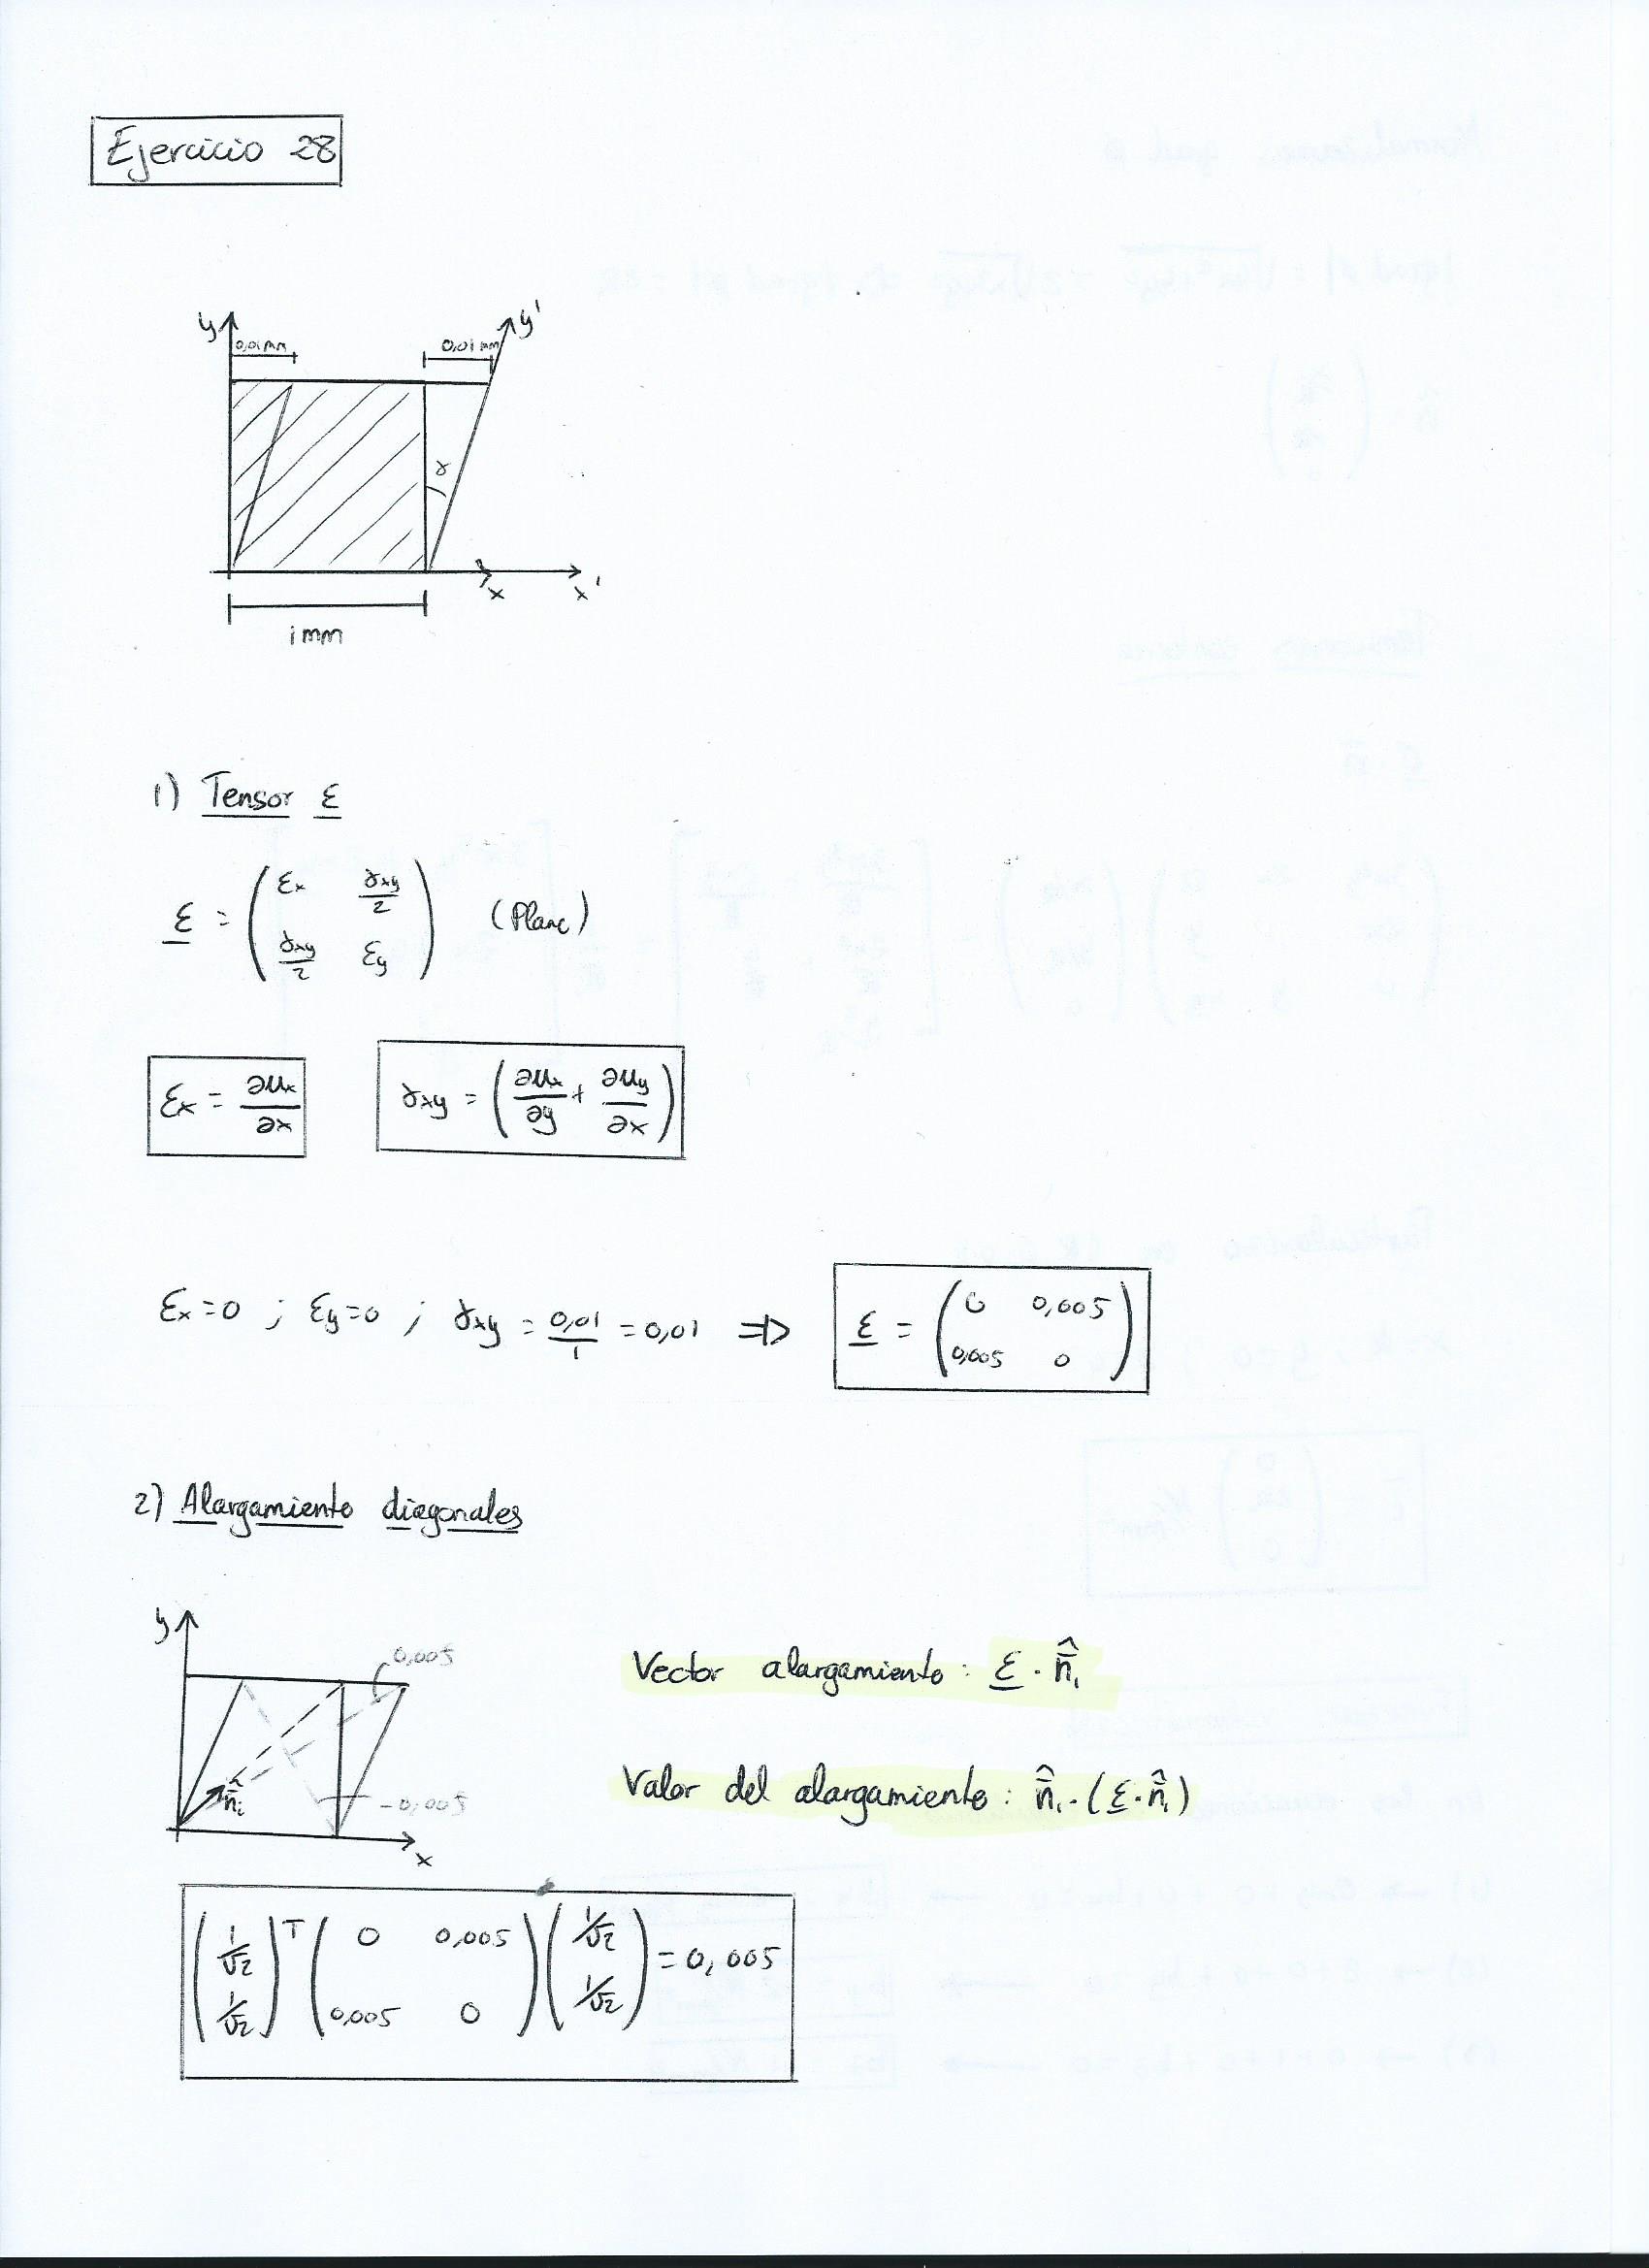 Ejercicio 28
y 0,01mm 0,01mm y'
γ
x x'
1mm
1) Tensor ε
ε = ( εx γxy/2 ; γxy/2 εy ) (Plane)
εx = ∂ux/∂x γxy = ( ∂ux/∂y + ∂uy/∂x )
εx = 0 ; εy = 0 ; γxy = 0,01/1 = 0,01 ⇒ ε = ( 0 0,005 ; 0,005 0 )
2) Alargamiento diagonales
y 0,005
Vector alargamiento: ε · n̂₁
n̂₁ -0,005
x
Valor del alargamiento: n̂₁ · (ε · n̂₁)
( 1/√2 ; 1/√2 )ᵀ ( 0 0,005 ; 0,005 0 ) ( 1/√2 ; 1/√2 ) = 0,005